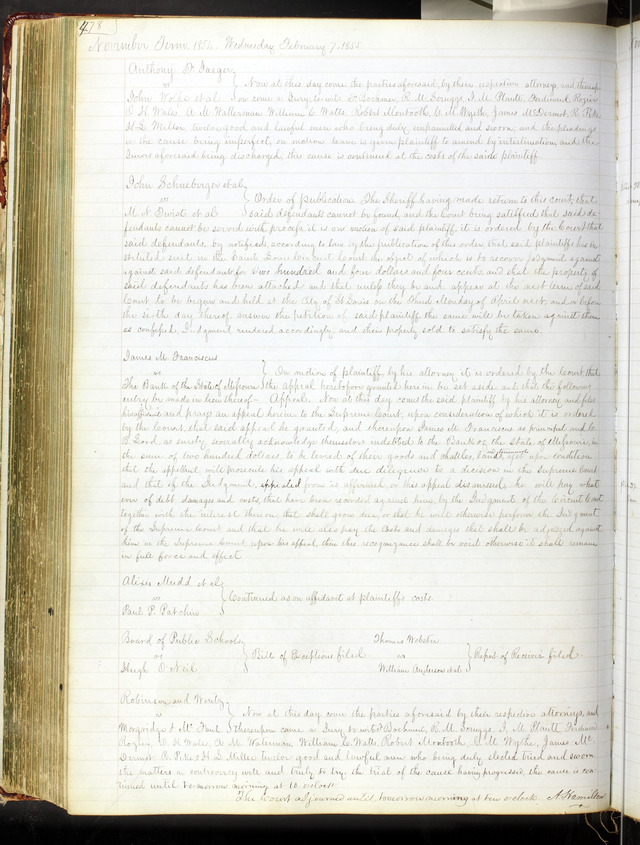 478
November Term 1854. Wednesday February 7, 1855.
Anthony F. Jaeger
vs
John Wolfe et al
Now at this day come the parties aforesaid, by their respective attorneys, and thereupon
now come a Jury to wit: Bocamer, R. M. Scruggs, I. M. Plautt, Ferdinand Rogers
D. H. Wales, A. M. Watterman, William C. Watts, Robert Monbooth, C. M. Wythe, James McDermot, R. Pike
H. L. Miller, twelve good and lawful men who being duly empannelled and sworn, and the pleadings
in the cause being imperfect, on motion leave is given plaintiff to amend by interlineations and the
Jurors aforesaid being discharged, this cause is continued at the costs of the said plaintiff
John Schneeberger et al
vs
M. N. Twist et al
Order of Publication. The Sheriff having made return to this court, that
said defendants cannot be found, and the Court being satisfied that said de-
fendants cannot be served with process, it is on motion of said plaintiff, it is ordered by the Court that
said defendants, be notified according to law by the publication of this order, that said plaintiffs has in-
stituted suit in the Saint Louis Circuit Court the object of which is to recover judgment against
against said defendants for two hundred and four dollars and four cents, and that the property of
said defendants has been attached and that unless they be and appear at the next term of said
Court, to be begun and held at the City of St Louis on the Third Monday of April next, and on or before
the sixth day thereof, answer the petition of said plaintiff, the same will be taken against them
as confessed, Judgment rendered accordingly and their property sold to satisfy the same.
James M. Franciscus
vs
The Bank of the State of Missouri
On motion of plaintiff, by his attorney it is ordered by the Court that
the appeal heretofore granted herein be set aside and that the following
entry be made in lieu thereof:- Appeal. Now at this day comes the said plaintiff by his attorney and files
his affidavit and prays an appeal herein to the Supreme Court, upon consideration of which it is ordered
by the Court, that said appeal be granted, and thereupon James M. Franciscus as principal and
Lord, as surety severally acknowledge themselves indebted to the Bank of the State of Missouri, in
the sum of two hundred dollars, to be levied of their goods and chattles, lands and tenements, yet upon condition
that the appellant will prosecute his appeal with due diligence to a decision in the Supreme Court
and that if the Judgment, appealed from is affirmed or his appeal dismissed, he will pay what
ever of debt damages and costs, that have been recorded against him, by the Judgment of the Circuit Court
together with the interest thereon that shall grow due, or that he will otherwise perform the Judgment
of the Supreme Court and that he will also pay the costs and damages that shall be adjudged against
him in the Supreme Court upon his appeal, then this recognizance shall be void otherwise it shall remain
in full force and effect.
Alexis Mudd et al
vs
Paul P. Patchin
Continued as on affidavit at plaintiff's costs.
Board of Public Schools
vs
Hugh O'Neil
Bill of Exceptions filed
Thomas Webster
vs
William Anderson et al
Report of Receiver filed.
Robinson and
vs
Morgridge & Mc
Now at this day come the parties aforesaid by their respective attorneys, and
thereupon came a Jury to wit: Bockamer, R. M. Scruggs, I. M. Plautt, Ferdinand
Rogers, D. H. Wales, A. M. Waterman, William C. Watts, Robert Monbooth, C. M. Wythe, James Mc
Dermot, R. Pike & H. L. Miller twelve good and lawful men who being duly elected tried and sworn
the matters in controversy well and truly to try, the trial of the cause having progressed, the cause is con-
tinued until tomorrow morning at 10 o'clock
The Court adjourned until, tomorrow morning at ten o'clock. A. Hamilton